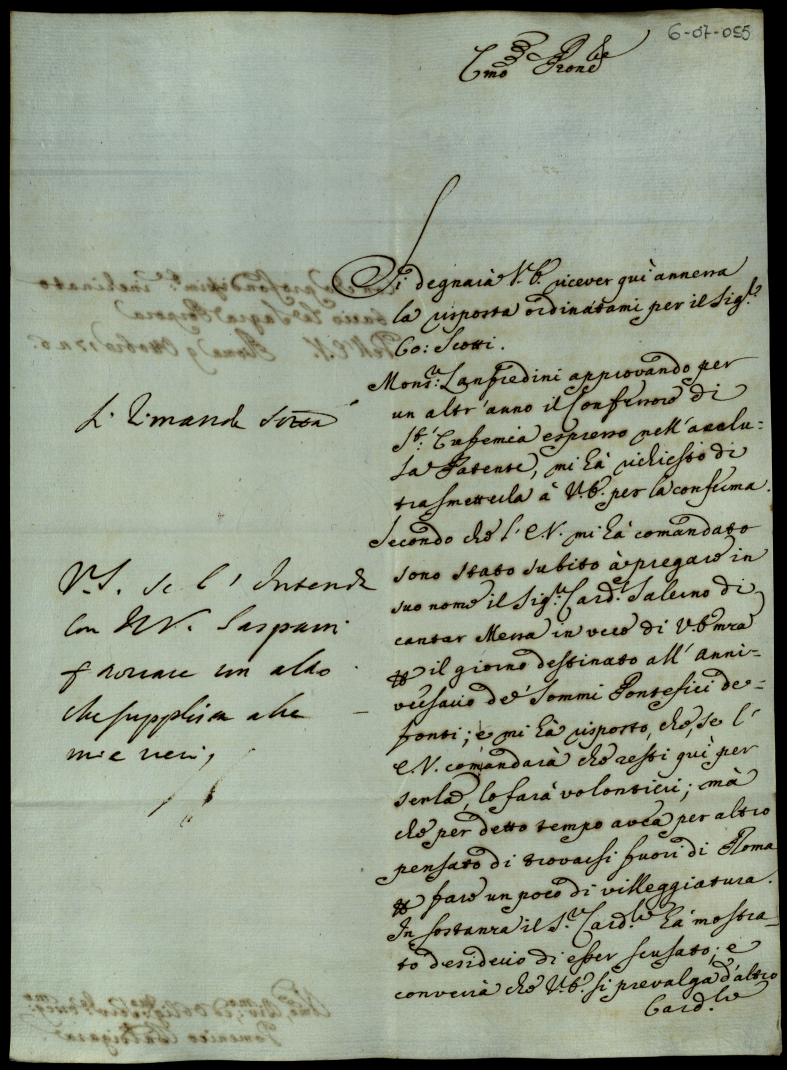 6-07-055
Emo Prone
Si degnarà V.E. ricever quì annessa
la risposta ordinatami per il Sigr.
Co: Scotti.
Monsr. Lanfredini approvando per
un altr'anno il Confessore di
Sta. Eufemia espresso nell'acclu-
sa Patente, mi hà richiesto di
trasmetterla à V.E. per la conferma.
Secondo che l'E.V. mi hà comandato
sono stato subito à pregare in
suo nome il Sigr. Cardl. Salerno di
cantar Messa in vece di V. Emza
il giorno destinato all'Anni-
versario de' Sommi Pontefici de-
fonti; e mi hà risposto, che, se l'
E.V. comandarà che resti quì per
servla, lo farà volontieri; mà
che per detto tempo avea per altro
pensato di trovarsi fuori di Roma
fare un poco di villeggiatura.
In sostanza il Sr. Cardle hà mostra-
to desiderio di esser scusato; e
converrà che V.E. si prevalga d'altro
Cardle
Si rimanda
V.S. se l'intenda
con Gasparri
trovare un altro
che supplisca alle
mie veci,